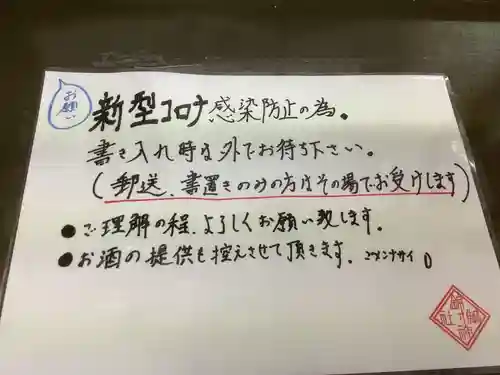 お願い
新型コロナ感染防止の為。
書き入れ時は外でお待ち下さい。
(郵送、書置きのみの方はその場でお受けします)
●ご理解の程、よろしくお願い致します。
●お酒の提供も控えさせて頂きます。ゴメンナサイ